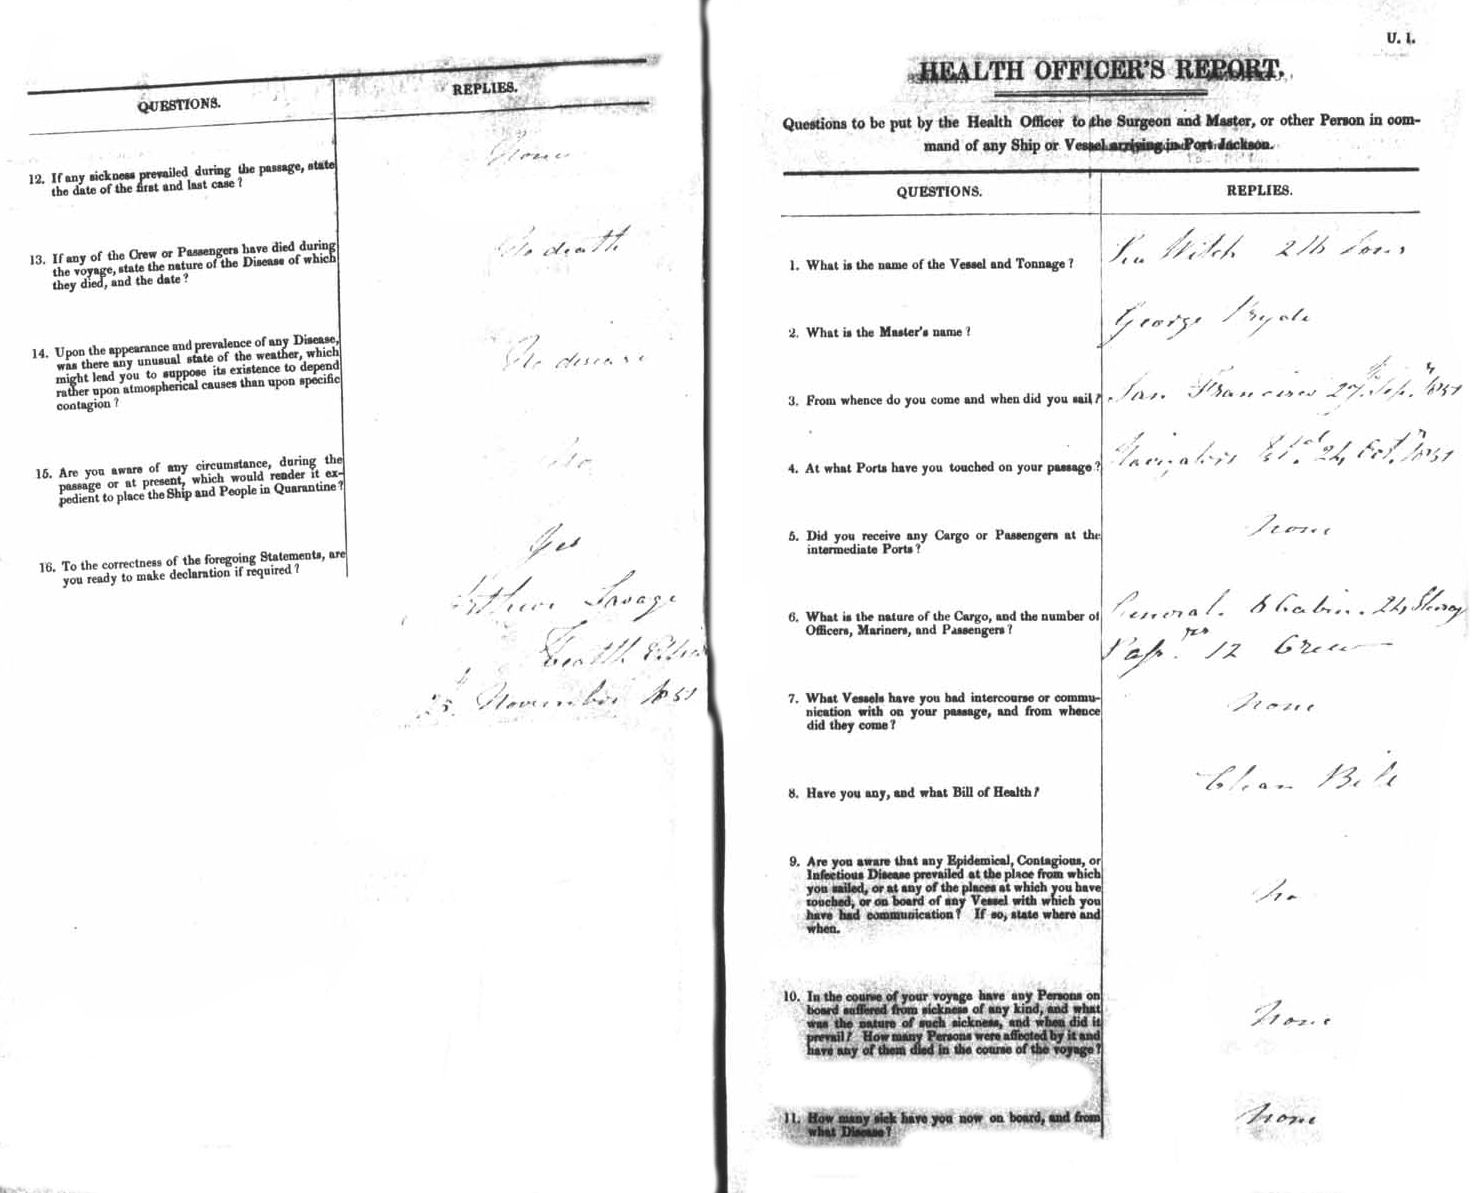 QUESTIONS.
REPLIES.
12. If any sickness prevailed during the passage, state
the date of the first and last case?
None
13. If any of the Crew or Passengers have died during
the voyage, state the nature of the Disease of which
they died, and the date?
No death
14. Upon the appearance and prevalence of any Disease,
was there any unusual state of the weather, which
might lead you to suppose its existence to depend
rather upon atmospherical causes than upon specific
contagion?
No disease
15. Are you aware of any circumstance, during the
passage or at present, which would render it ex-
pedient to place the Ship and People in Quarantine?
No
16. To the correctness of the foregoing Statements, are
you ready to make declaration if required?
Yes
Arthur Savage
Health
November 1851
U. 1.
HEALTH OFFICER'S REPORT.
Questions to be put by the Health Officer to the Surgeon and Master, or other Person in com-
mand of any Ship or Vessel arriving in Port Jackson.
QUESTIONS.
REPLIES.
1. What is the name of the Vessel and Tonnage?
Sea Witch Tons
2. What is the Master's name?
George Pryde
3. From whence do you come and when did you sail?
San Francisco 27th Sepr 1851
4. At what Ports have you touched on your passage?
Navigators Isld. 24 Octr 1851
5. Did you receive any Cargo or Passengers at the
intermediate Ports?
None
6. What is the nature of the Cargo, and the number of
Officers, Mariners, and Passengers?
General. 8 Cabin. 24 Steerage
Passrs 12 Crew
7. What Vessels have you had intercourse or commu-
nication with on your passage, and from whence
did they come?
None
8. Have you any, and what Bill of Health?
Clean Bill
9. Are you aware that any Epidemical, Contagious, or
Infectious Disease prevailed at the place from which
you sailed, or at any of the places at which you have
touched, or on board of any Vessel with which you
have had communication? If so, state where and
when.
No
10. In the course of your voyage have any Persons on
board suffered from sickness of any kind, and what
was the nature of such sickness, and when did it
prevail? How many Persons were affected by it and
have any of them died in the course of the voyage?
None
11. How many sick have you now on board, and from
what Disease?
None